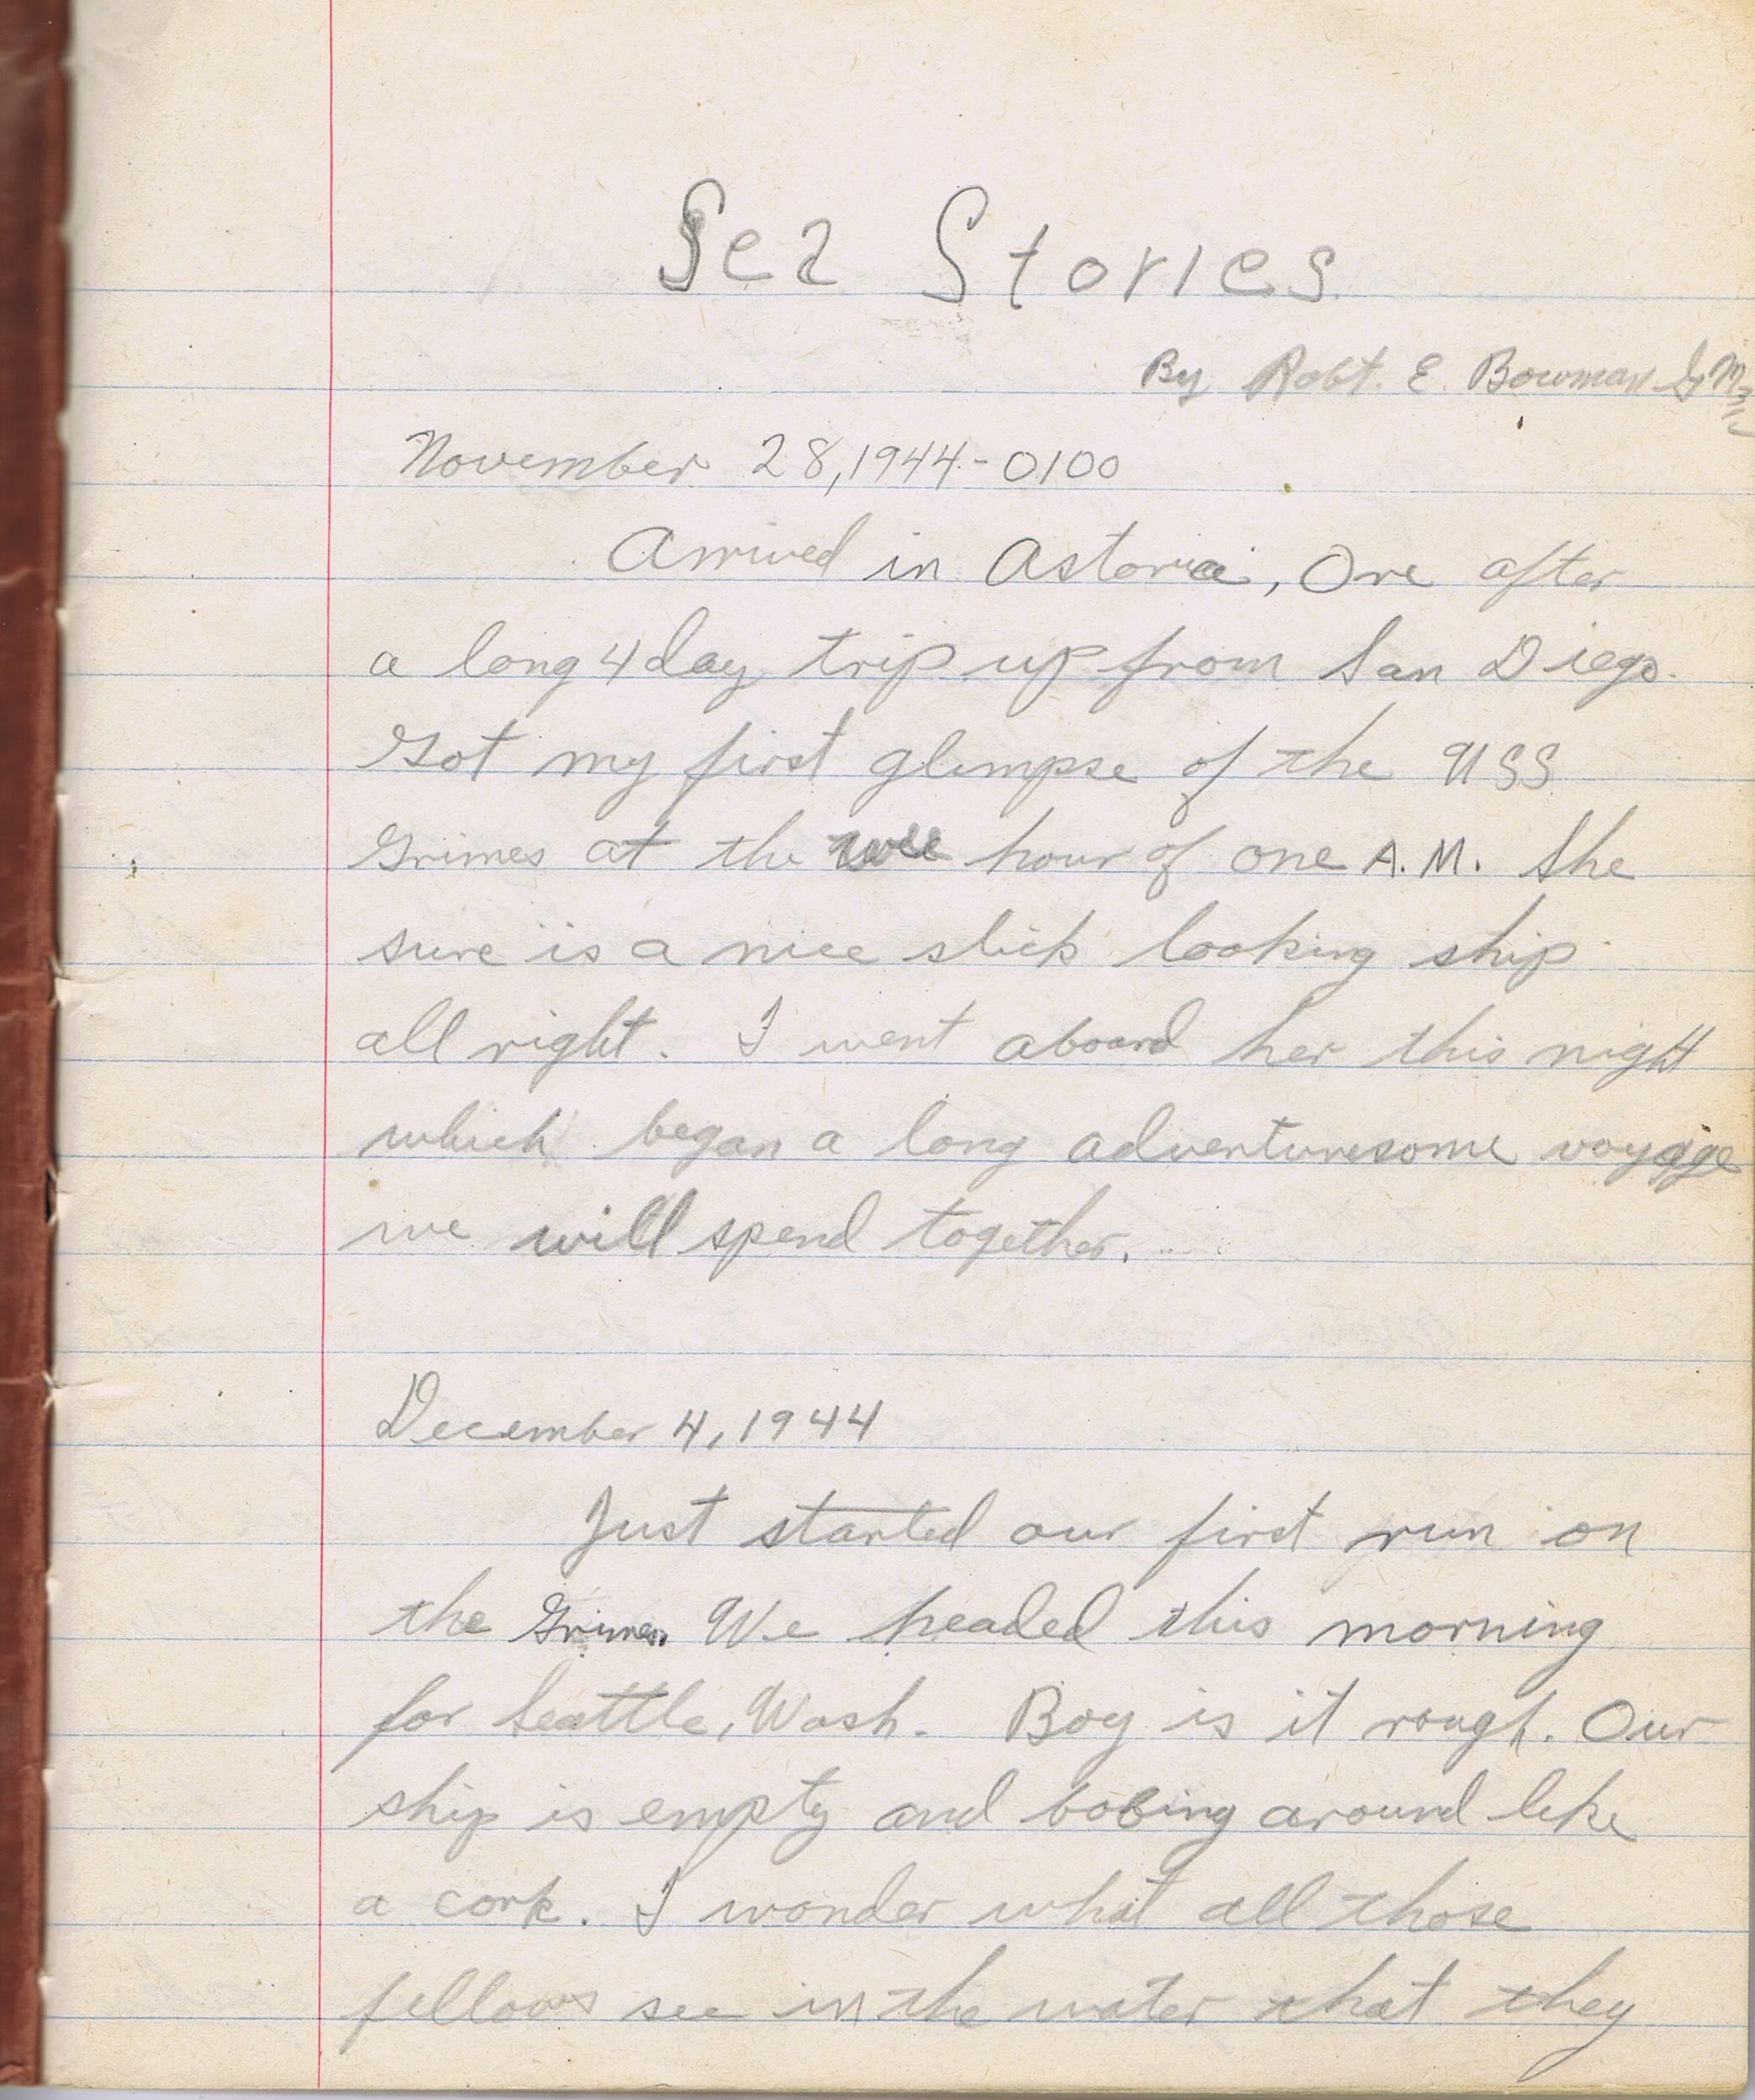 Sea Stories
By Robt. E. Bowman
November 28, 1944 - 0100
Arrived in Astoria, Ore after
a long 4 day trip up from San Diego.
Got my first glimpse of the USS
Grimes at the wee hour of one A.M. She
sure is a nice slick looking ship
all right. I went aboard her this night
which began a long adventuresome voyage
we will spend together.
December 4, 1944
Just started our first run on
the Grimes. We headed this morning
for Seattle, Wash. Boy is it rough. Our
ship is empty and bobing around like
a cork. I wonder what all those
fellows see in the water that they